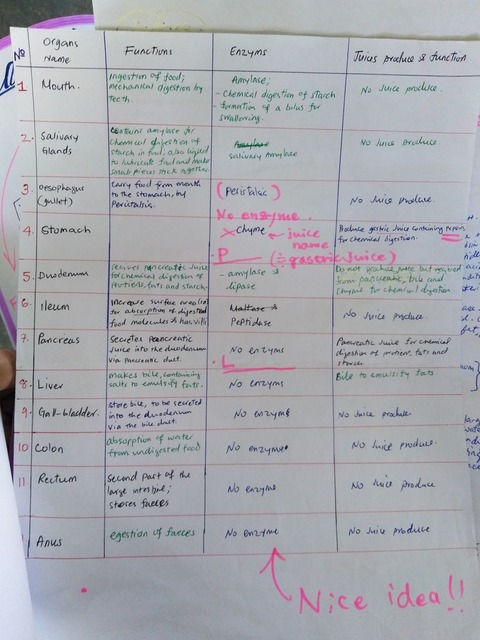 No Organs Name Functions Enzyms Juices produce & function
1 Mouth. Ingestion of food; mechanical digestion by teeth. Amylase; - Chemical digestion of starch - formation of a bolus for swallowing. No Juice produce.
2. Salivary Glands Contains amylase for chemical digestion of starch in food, also liquid to lubricate food and make small pieces stick together. Amylase salivary Amylase No Juice produce
3. oesophagus (gullet) Carry food from mouth to the stomach, by Peristalsis. (Peristalsis) No enzyme. No Juice produce.
4. Stomach X chyme ← juice name P (= gastric juice) Produce gastric Juice containing pepsin for chemical digestion.
5. Duodenum receives pancreatic Juice for chemical digestion of proteins, fats and starch. - amylase & lipase Do not produce Juice but received from pancreatic, bile and chyme for chemical digestion
6 Ileum Increase surface area for absorption of digested food molecules & has villi Maltase & Peptidase No Juice produce.
7. Pancreas Secretes Pancreatic Juice into the duodenum via pancreatic duct. No enzyms L Pancreatic Juice for chemical digestion of protient, fats and starch.
8. Liver makes bile, containing salts to emulsify fats. No enzyms Bile to emulsify fats
9. Gall-bladder. store bile, to be secreted into the duodenum via the bile duct. No enzyms No Juice produce
10 Colon absorption of water from undigested food No enzyme. No Juice produce.
11 Rectum second part of the large intestine; stores faeces No enzyms No Juice produce
Anus egestion of faeces No enzyme No Juice produce
Nice idea!!